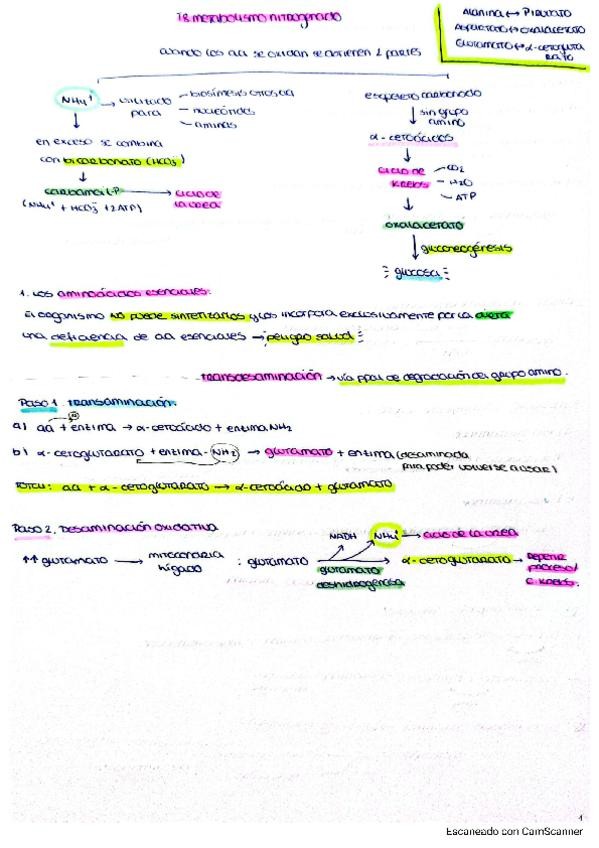 T.8 metabolismo nitrogenado
Alanina ↔ Piruvato
Aspartato ↔ Oxalacetato
Glutamato ↔ α-cetogluta
rato
cuando los aa se oxidan se obtienen 2 partes
NH4+ → utilizado para
- biosíntesis otros aa
- nucleótidos
- aminas
en exceso se combina
con bicarbonato (HCO3-)
carbamoil-P → ciclo de la urea
(NH4+ + HCO3- + 2ATP)
esqueleto carbonado
↓ sin grupo amino
α-cetoácidos
ciclo de Krebs
- CO2
- H2O
- ATP
oxalacetato
↓ gluconeogénesis
glucosa
1. Los aminoácidos esenciales:
El organismo no puede sintetizarlos y los incorpora exclusivamente por la dieta
una deficiencia de aa esenciales → peligro salud
transdesaminación → vía ppal de degradación del grupo amino.
Paso 1. Transaminación.
a) aa + enzima → α-cetoácido + enzima NH2
b) α-cetoglutarato + enzima-NH2 → glutamato + enzima (desaminada
para poder volverse a usar)
TOTAL: aa + α-cetoglutarato → α-cetoácido + glutamato
Paso 2. Desaminación oxidativa
NADH NH4+ → ciclo de la urea
↑↑ glutamato → mitocondria hígado : glutamato → α-cetoglutarato → Repetir proceso/
C. Krebs.
glutamato
deshidrogenasa
1
Escaneado con CamScanner